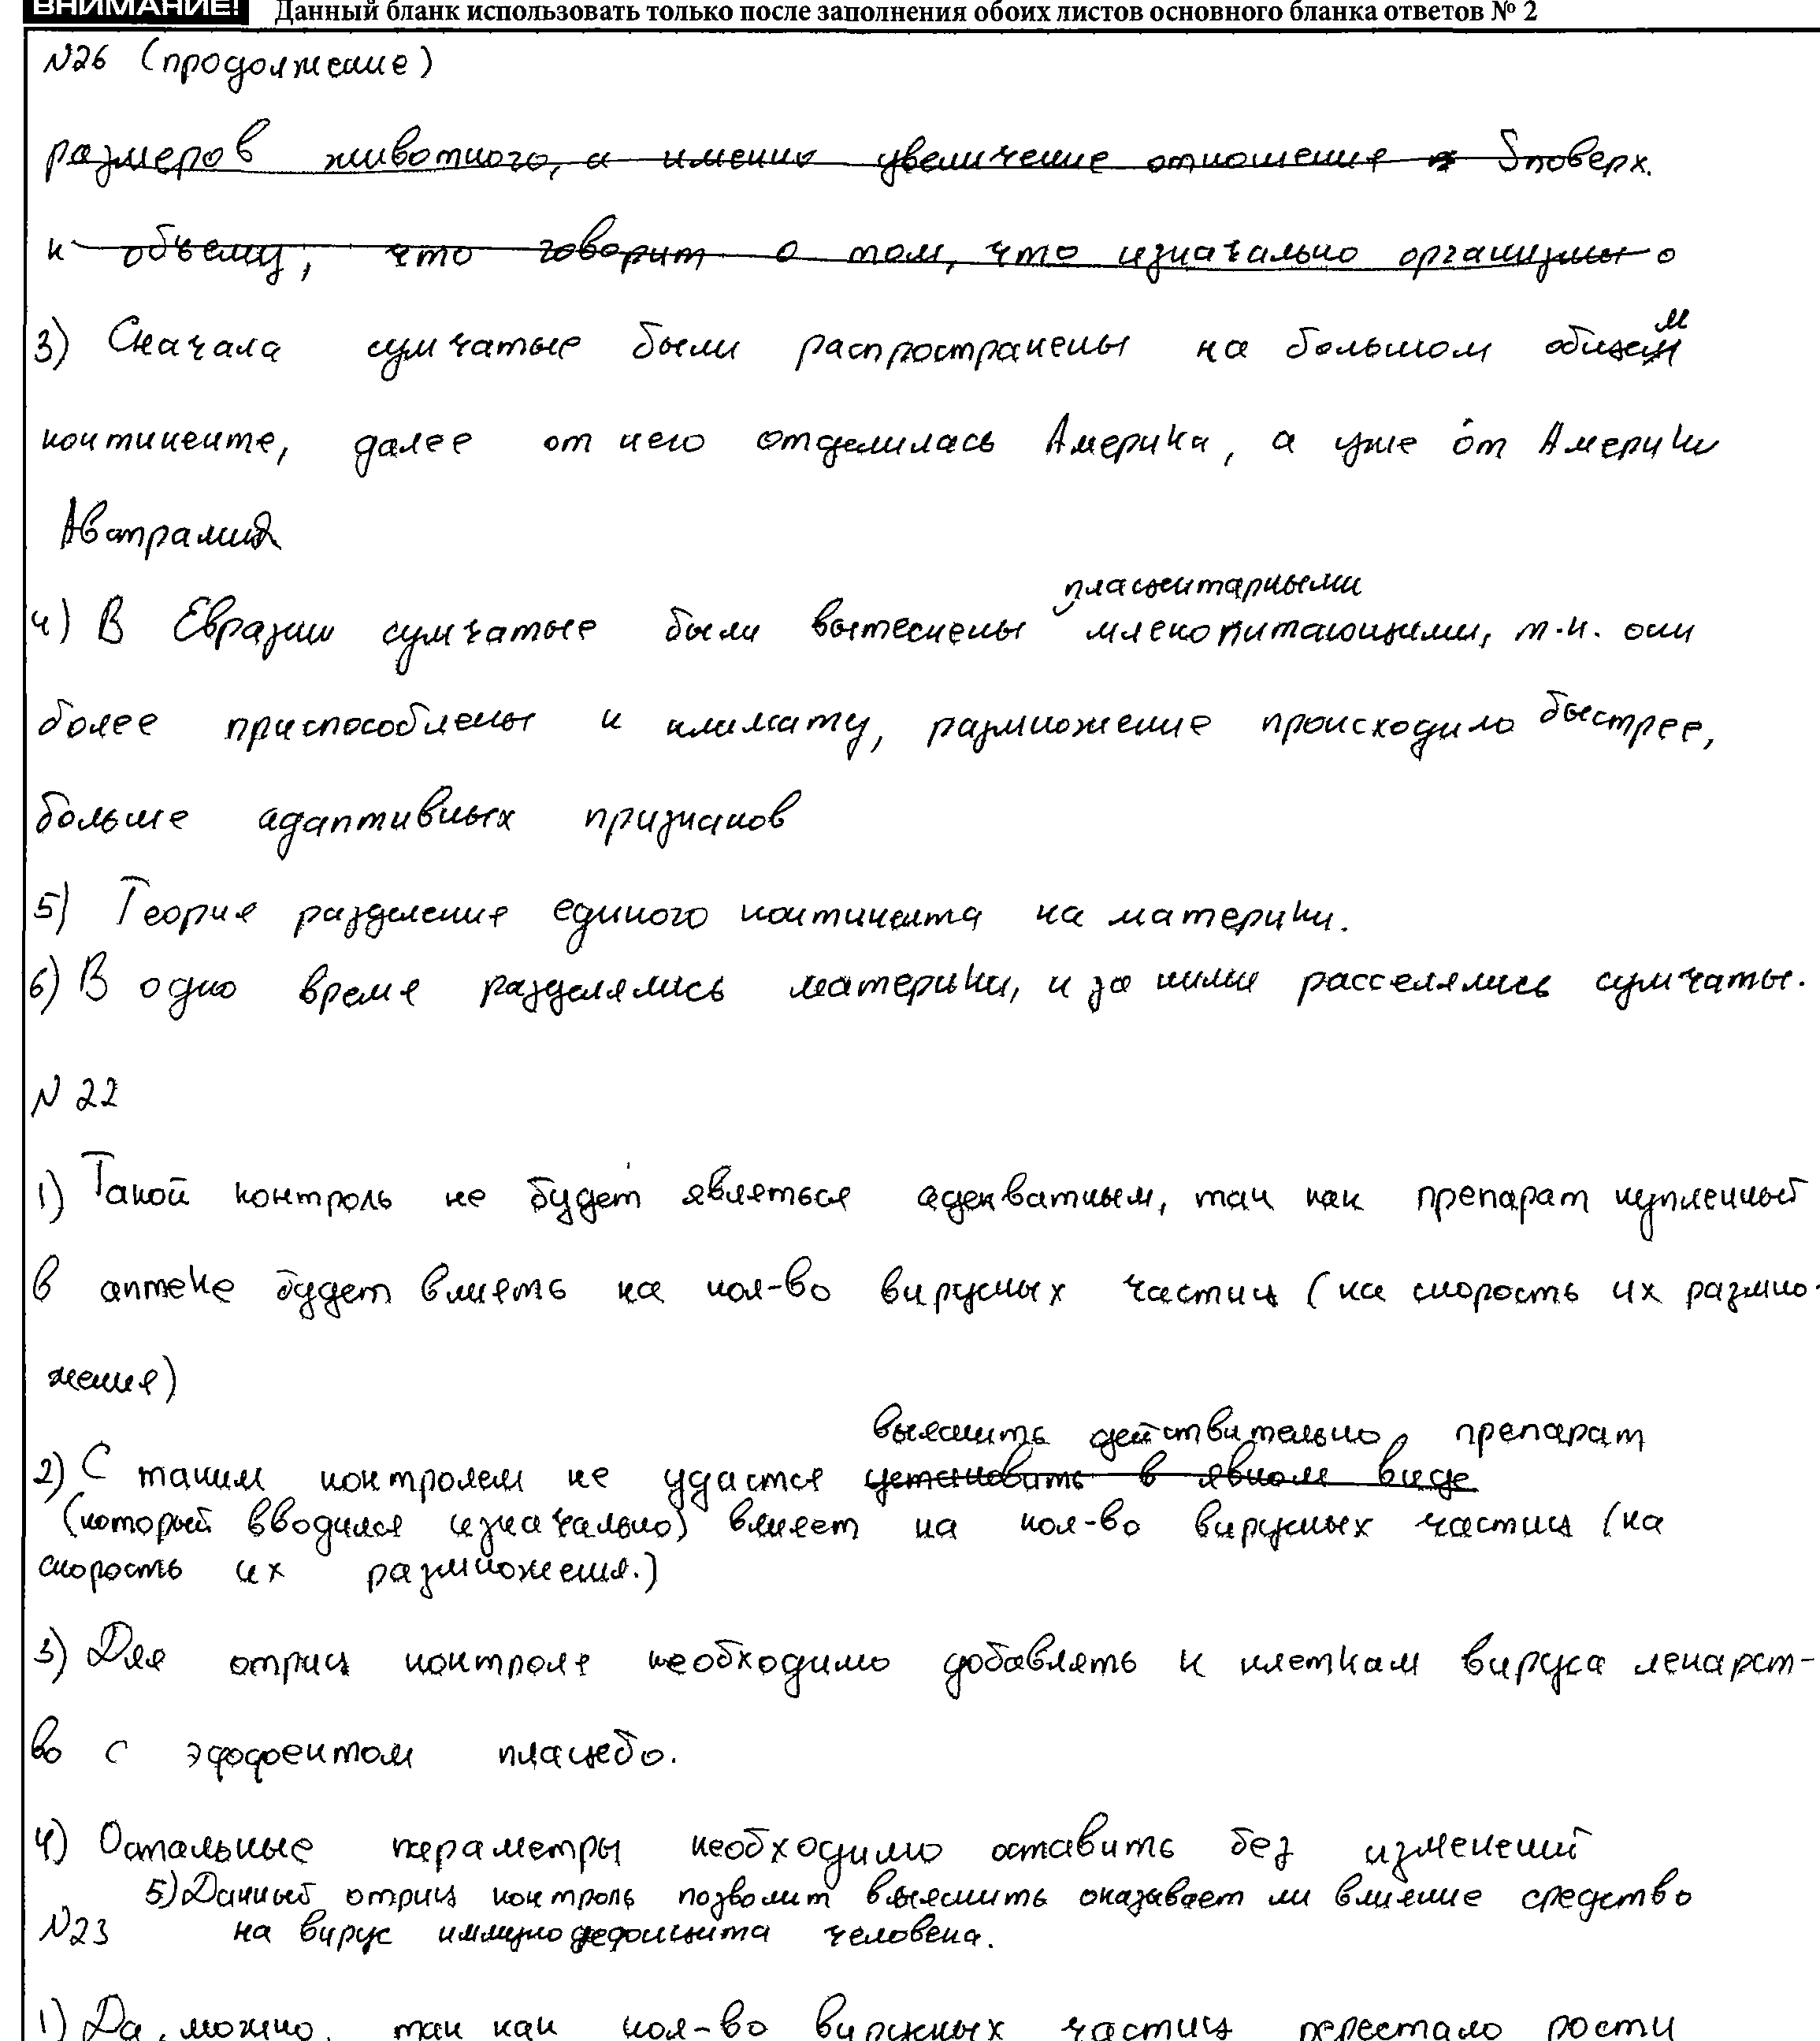 ВНИМАНИЕ! Данный бланк использовать только после заполнения обоих листов основного бланка ответов № 2
N26 (продолжение)
размеров животного, а именно увеличение отношения Sповерх.
к объему, что говорит о том, что изначально организмы о
3) Сначала сумчатые были распространены на большом общем
континенте, далее от него отделилась Америка, а уже от Америки
Австралия
плацентарными
4) В Евразии сумчатые были вытеснены млекопитающими, т.к. они
более приспособлены к климату, размножение происходило быстрее,
больше адаптивных признаков
5) Теория разделения единого континента на материки.
6) В одно время разделялись материки, и за ними расселялись сумчаты.
N 22
1) Такой контроль не будет являться адекватным, так как препарат купленный
в аптеке будет влиять на кол-во вирусных частиц (на скорость их размно-
жения)
выяснить действительно препарат
2) С таким контролем не удастся установить в явном виде
(который вводился изначально) влияет на кол-во вирусных частиц (на
скорость их размножения.)
3) Для отриц контроля необходимо добавлять к клеткам вируса лекарст-
во с эффектом плацебо.
4) Остальные параметры необходимо оставить без изменений
5) Данный отриц контроль позволит выяснить оказывает ли влияние средство
N23 на вирус иммунодефицита человека.
1) Да, можно, так как кол-во вирусных частиц перестало расти